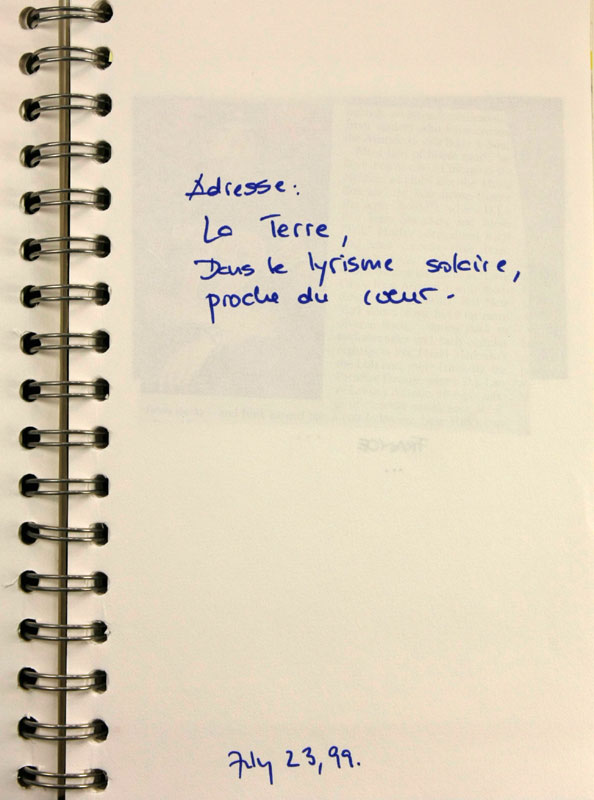 Adresse:
La Terre,
Dans le lyrisme solaire,
proche du cœur.
July 23, 99.